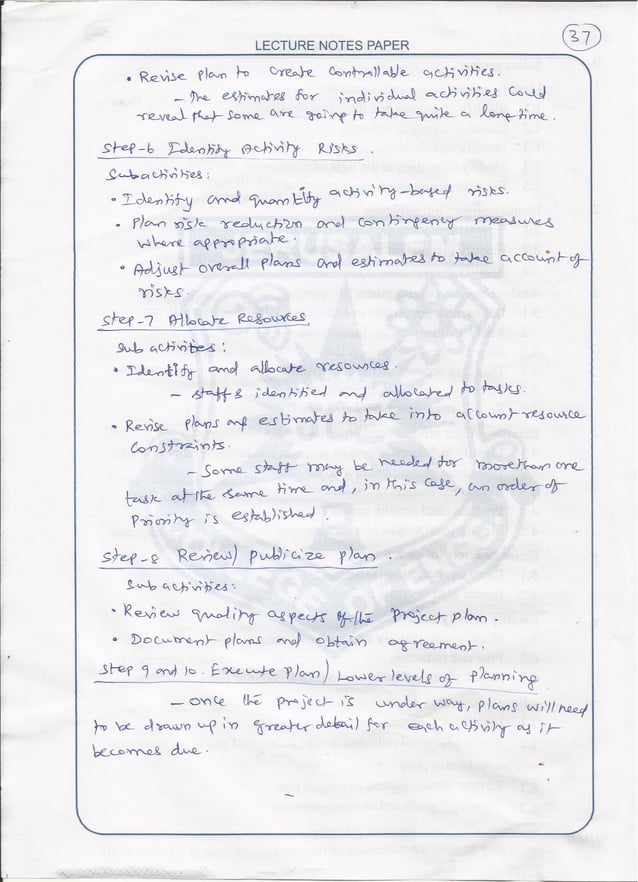 37
LECTURE NOTES PAPER
• Revise plan to create controllable activities.
– The estimates for individual activities could
reveal that some are going to take quite a long time.
Step-6 Identify Activity Risks.
Subactivities:
• Identify and quantify activity-based risks.
• Plan risk reduction and contingency measures
where appropriate.
• Adjust overall plans and estimates to take account of
risks.
Step-7 Allocate Resources
Sub activities:
• Identify and allocate resources.
– staff & identified and allocated to tasks.
• Revise plans and estimates to take into account resource
constraints.
– Some staff may be needed for more than one
task at the same time and, in this case, an order of
Priority is established.
Step-8 Review/ publicize plan.
Sub activities:
• Review quality aspects of the project plan.
• Document plans and obtain agreement.
Step 9 and 10. Execute plan/ Lower levels of planning
– once the project is under way, plans will need
to be drawn up in greater detail for each activity as it
becomes due.